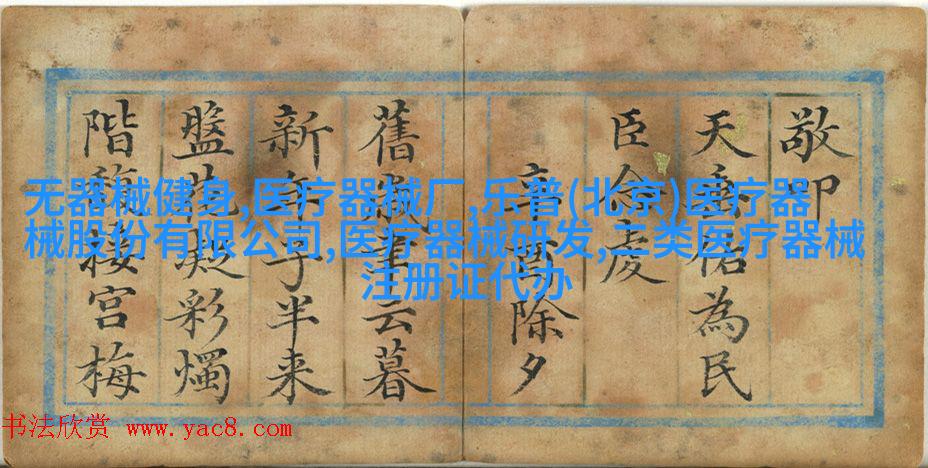 敬叩
天垂佑為民
臣虔
辛除夕
舊歲云暮
新年子半来
盤殿彩燭
階宮梅
无器械健身,医疗器械厂,乐普(北京)医疗器
械股份有限公司,医疗器械研发,二类医疗器械
注册证代办
书法欣赏 www.yac8.com